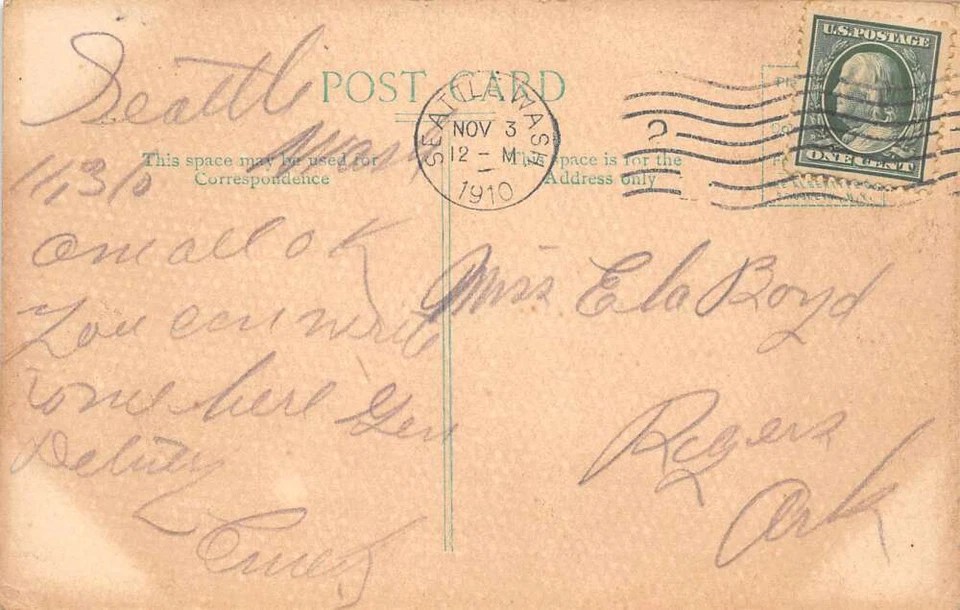 POST CARD
This space may be used for
Correspondence
This space is for the
Address only
SEATTLE, WASH.
NOV 3
12 - M
1910
2
U.S. POSTAGE
ONE CENT
Seattle
Wash
11,3,10
am all o K
You can write
to me here Gen
Delivey
Miss Ela Boyd
Rogers
Ark